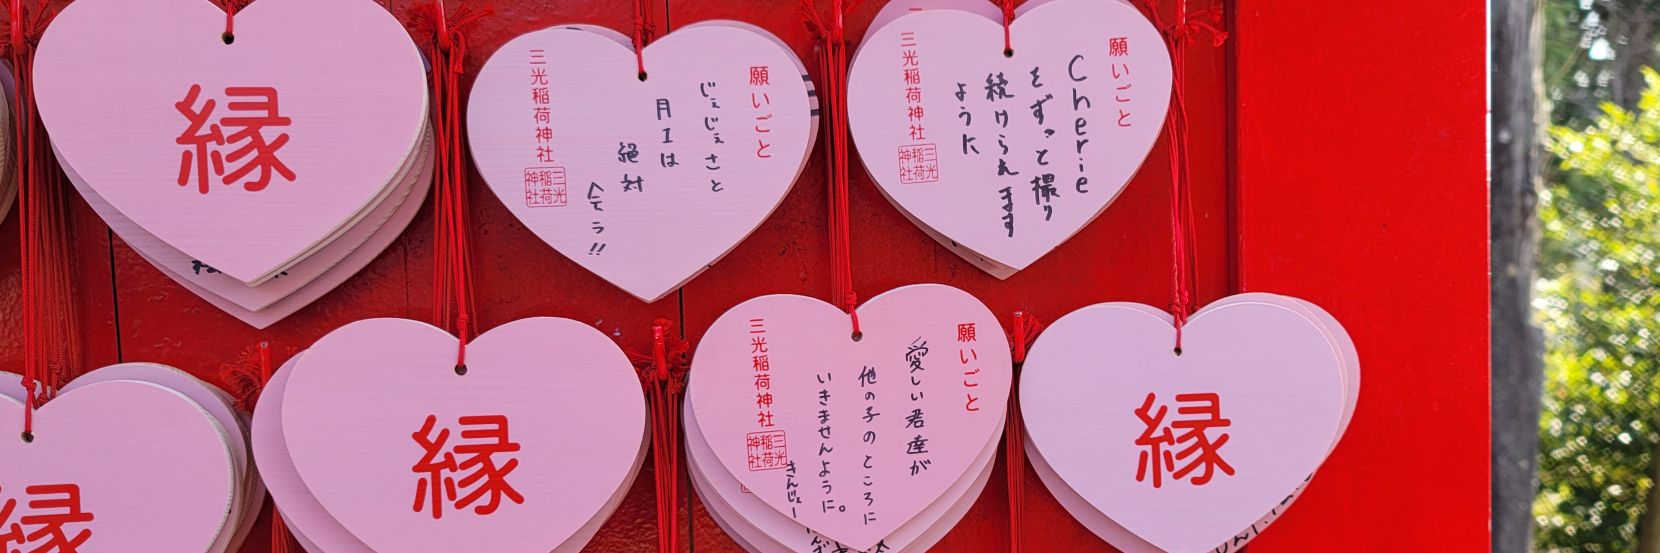 縁
願いごと
じぇじぇさと
月Iは
絶対
三光稲荷神社
三光稲荷神社
願いごと
Cherie
をずっと撮り
続けられます
ように
三光稲荷神社
三光稲荷神社
縁
縁
願いごと
愛しい君達が
他の子のところに
いきませんように。
きんじぇー
三光稲荷神社
三光稲荷神社
縁